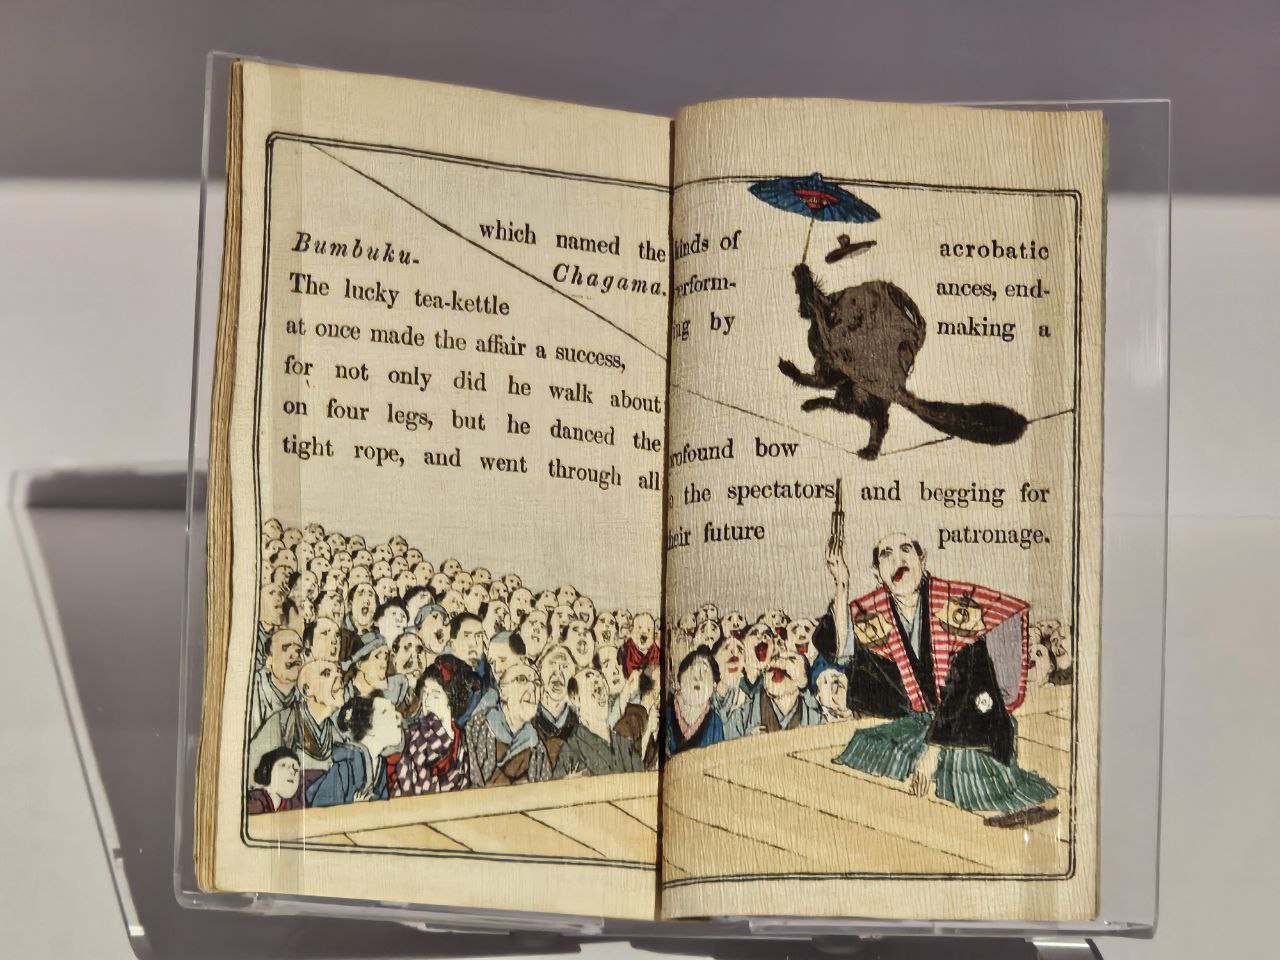 which named the
Bumbuku-
Chagama.
The lucky tea-kettle
at once made the affair a success,
for not only did he walk about
on four legs, but he danced the
tight rope, and went through all
kinds of acrobatic
erform- ances, end-
ing by making a
rofound bow
the spectators, and begging for
heir future patronage.